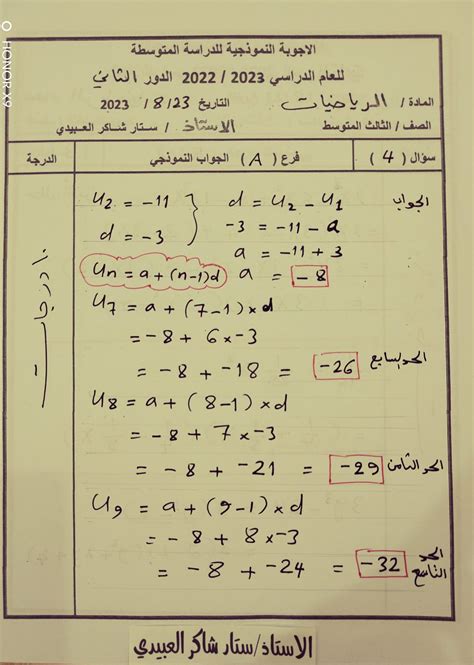 HONOR X9
الاجوبة النموذجية للدراسة المتوسطة
للعام الدراسي 2023 / 2022 الدور الثاني
المادة / الرياضيات التاريخ 23 / 8 / 2023
الصف / الثالث المتوسط الاستاذ / ستار شاكر العبيدي
سؤال ( 4 ) فرع ( A ) الجواب النموذجي الدرجة
الجواب
U2 = -11 d = U2 - U1
d = -3 -3 = -11 - a
a = -11 + 3
Un = a + (n-1)d a = -8
U7 = a + (7-1) × d
= -8 + 6 × -3
= -8 + -18 = -26 الحد السابع
U8 = a + (8-1) × d
= -8 + 7 × -3
= -8 + -21 = -29 الحد الثامن
U9 = a + (9-1) × d
= -8 + 8 × -3
= -8 + -24 = -32 الحد التاسع
درجات
الاستاذ/ستار شاكر العبيدي